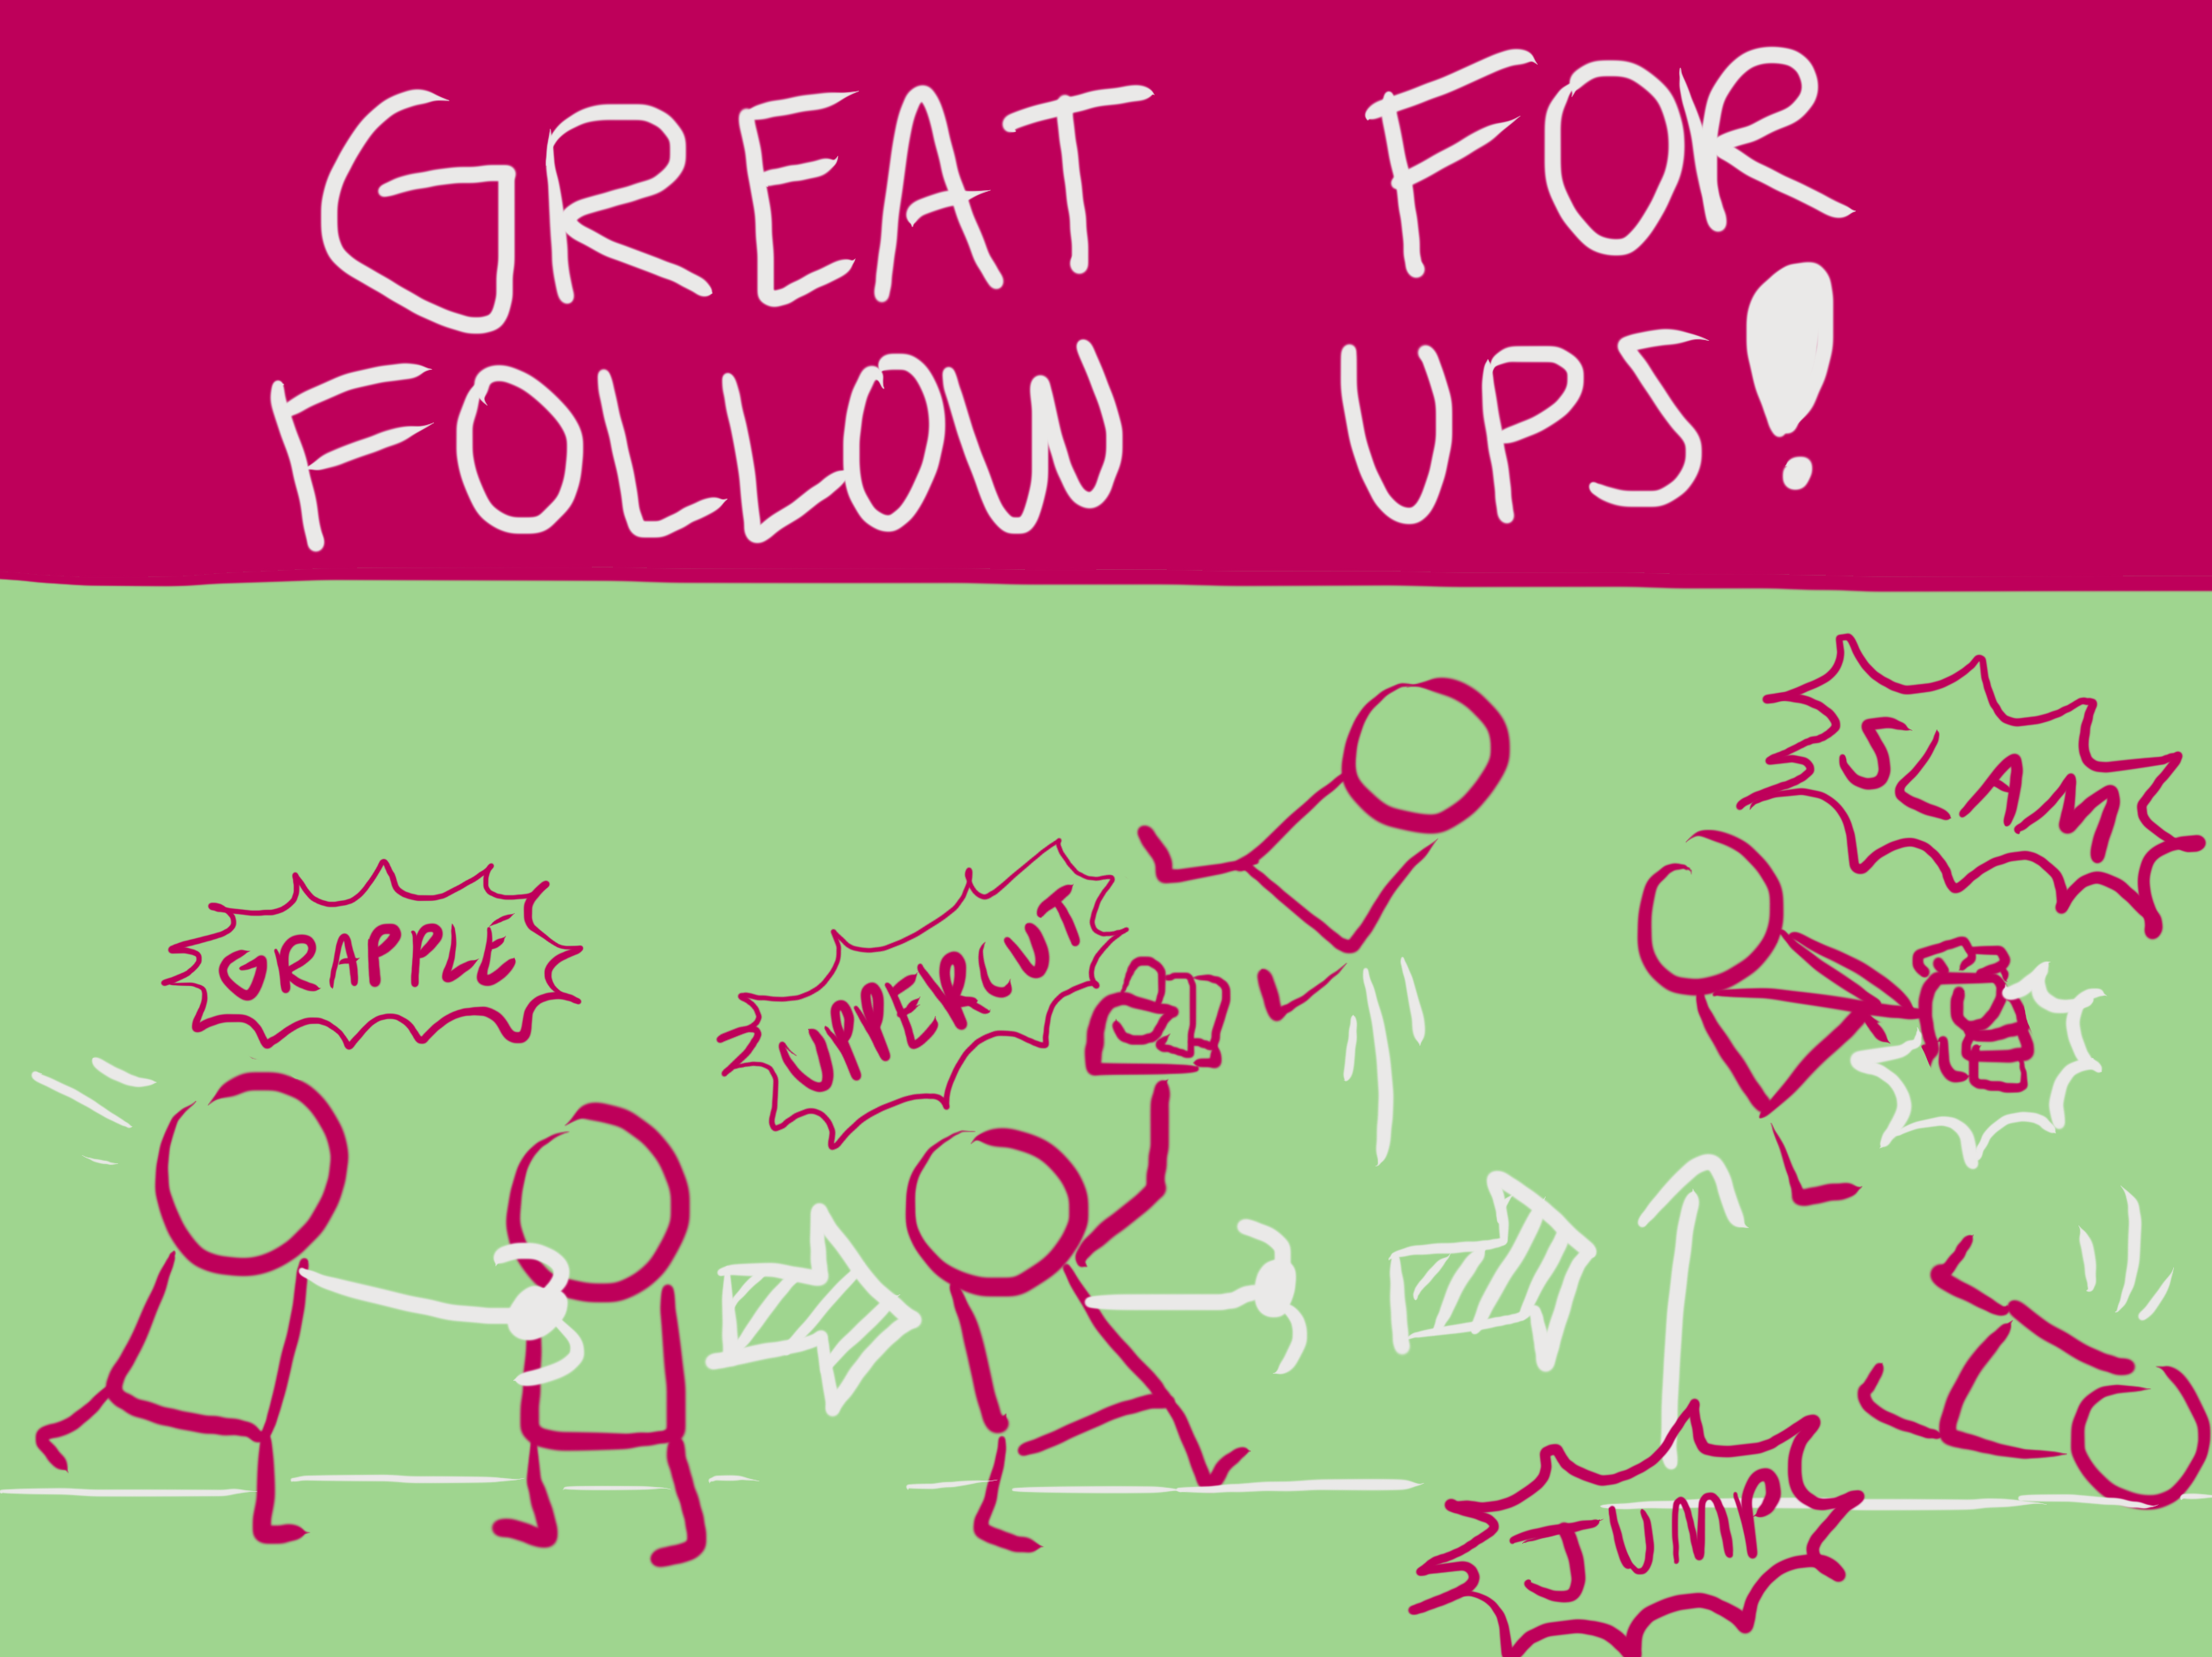 GREAT FOR
FOLLOW UPS!
GRAPPLE
UPPERCUT
SLAM
JUMP